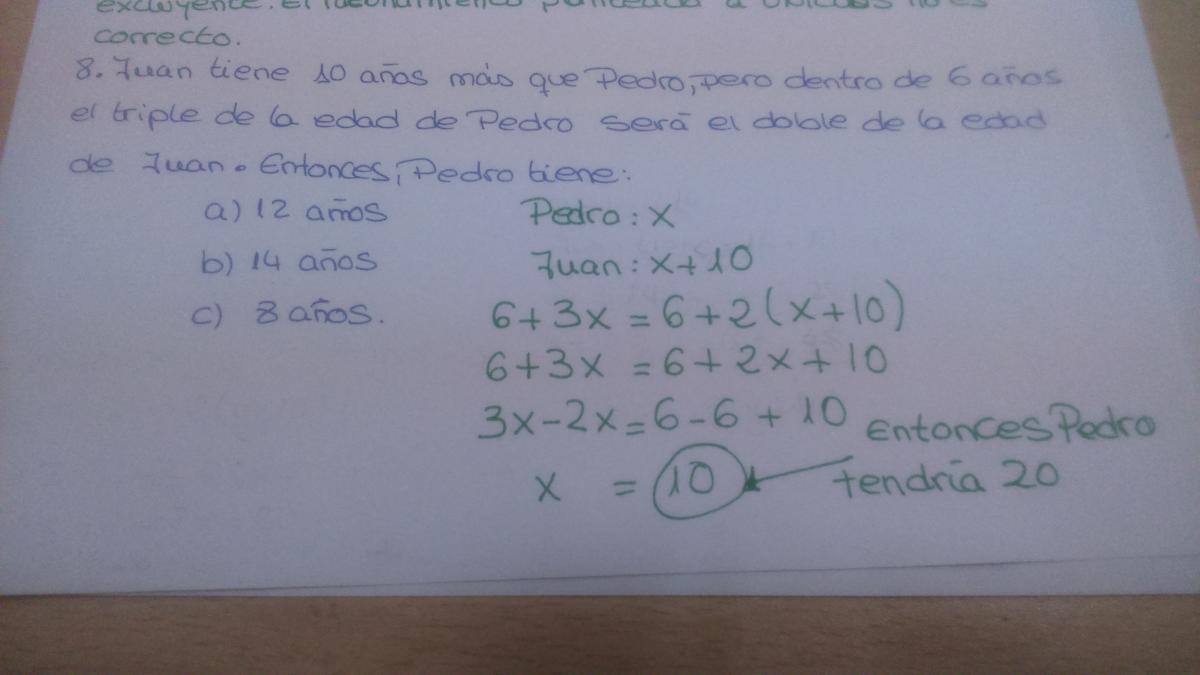 excluyente. El razonamiento planteado a
no es
correcto.
8. Juan tiene 10 años más que Pedro, pero dentro de 6 años
el triple de la edad de Pedro será el doble de la edad
de Juan. Entonces, Pedro tiene:
a) 12 años
Pedro: x
b) 14 años
Juan: x+10
c) 8 años.
6+3x = 6+2(x+10)
6+3x = 6+2x+10
3x-2x=6-6+10
Entonces Pedro
x = 10
tendría 20